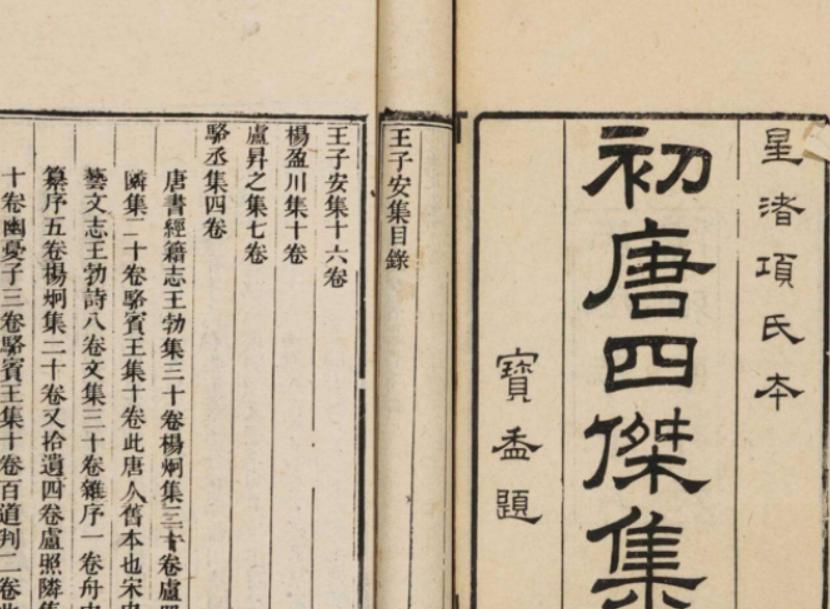 星渚項氏本
初唐四傑集
寶孟題
王子安集目錄
王子安集十六卷
楊盈川集十卷
盧昇之集七卷
駱丞集四卷
唐書經籍志王勃集三十卷楊炯集三十卷盧照
隣集二十卷駱賓王集十卷此唐人舊本也宋史
藝文志王勃詩八卷文集三十卷雜序一卷舟中
纂序五卷楊炯集二十卷又拾遺四卷盧照隣集
十卷幽憂子三卷駱賓王集十卷百道判二卷